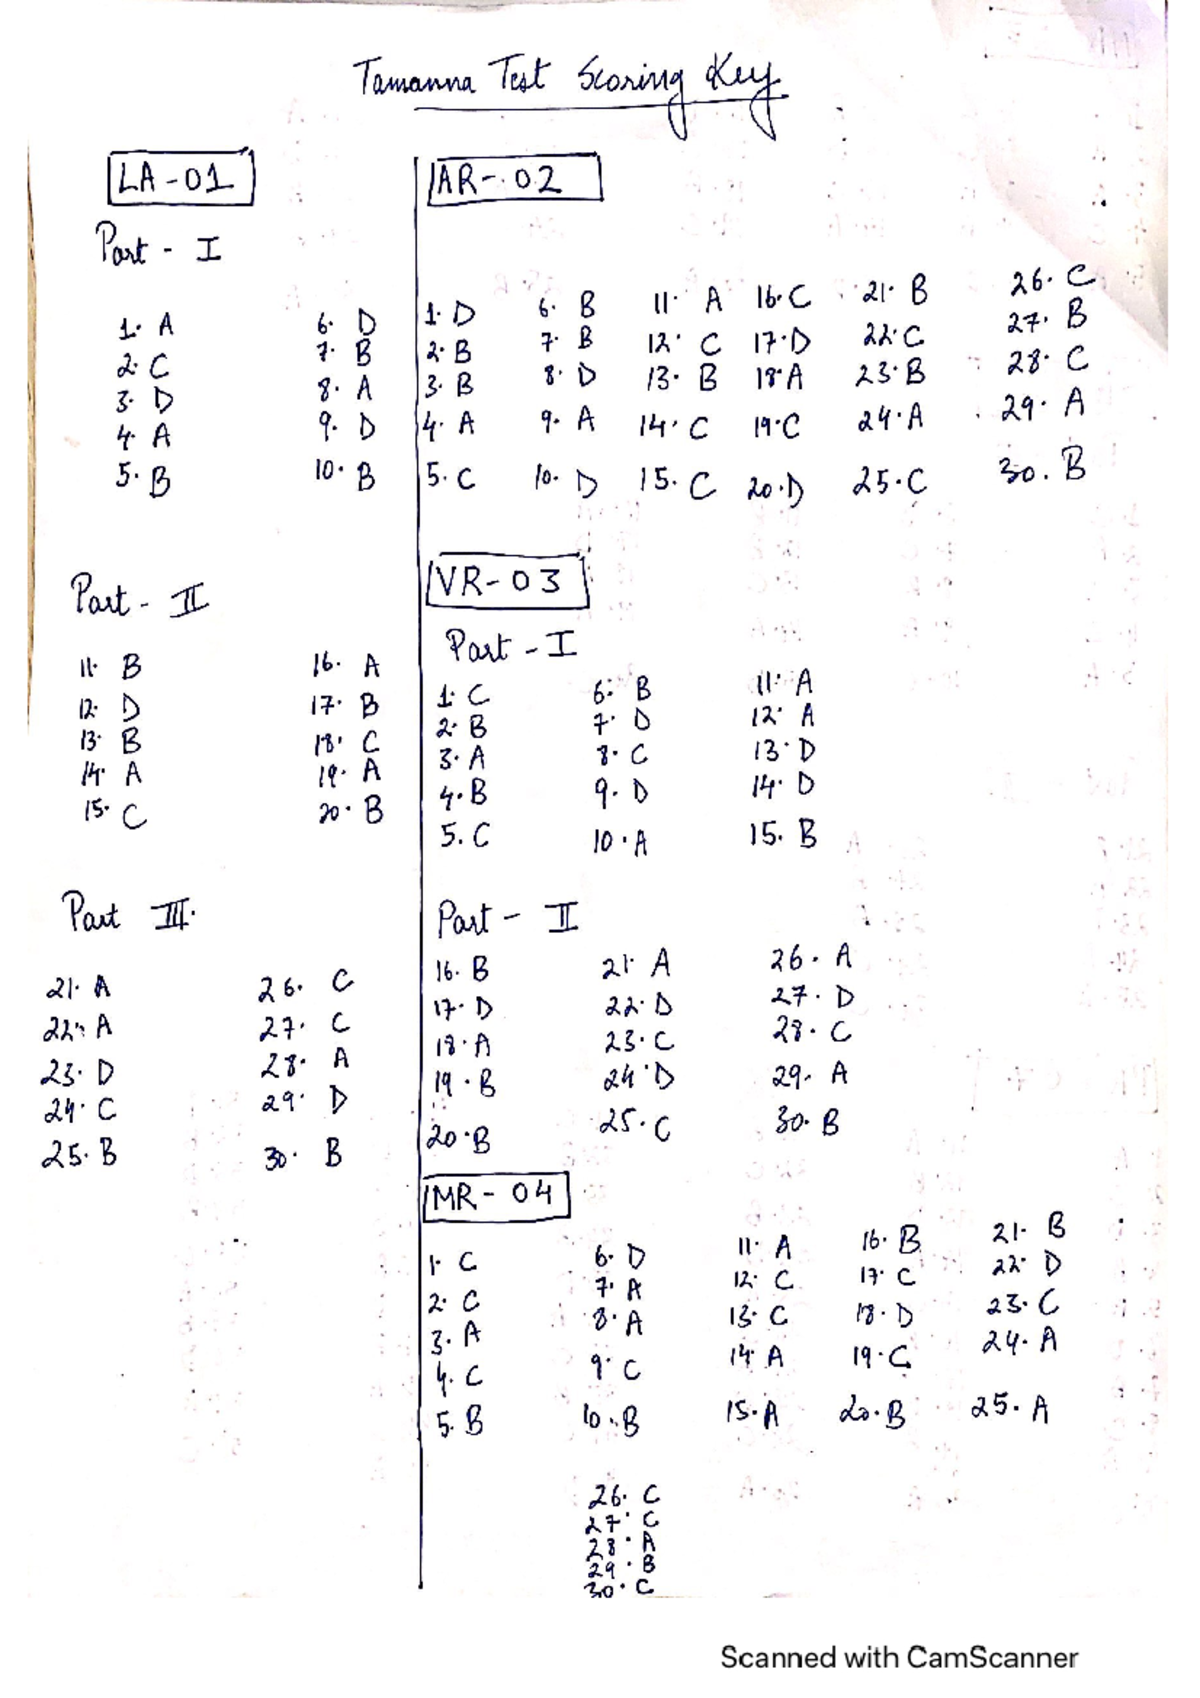 Tamanna Test Scoring Key
LA-01
Part - I
1. A 6. D
2. C 7. B
3. D 8. A
4. A 9. D
5. B 10. B
Part - II
11. B 16. A
12. D 17. B
13. B 18. C
14. A 19. A
15. C 20. B
Part III.
21. A 26. C
22. A 27. C
23. D 28. A
24. C 29. D
25. B 30. B
AR-02
1. D 6. B 11. A 16. C 21. B 26. C
2. B 7. B 12. C 17. D 22. C 27. B
3. B 8. D 13. B 18. A 23. B 28. C
4. A 9. A 14. C 19. C 24. A 29. A
5. C 10. D 15. C 20. D 25. C 30. B
VR-03
Part - I
1. C 6. B 11. A
2. B 7. D 12. A
3. A 8. C 13. D
4. B 9. D 14. D
5. C 10. A 15. B
Part - II
16. B 21. A 26. A
17. D 22. D 27. D
18. A 23. C 28. C
19. B 24. D 29. A
20. B 25. C 30. B
MR-04
1. C 6. D 11. A 16. B 21. B
2. C 7. A 12. C 17. C 22. D
3. A 8. A 13. C 18. D 23. C
4. C 9. C 14. A 19. C 24. A
5. B 10. B 15. A 20. B 25. A
26. C
27. C
28. A
29. B
30. C
Scanned with CamScanner